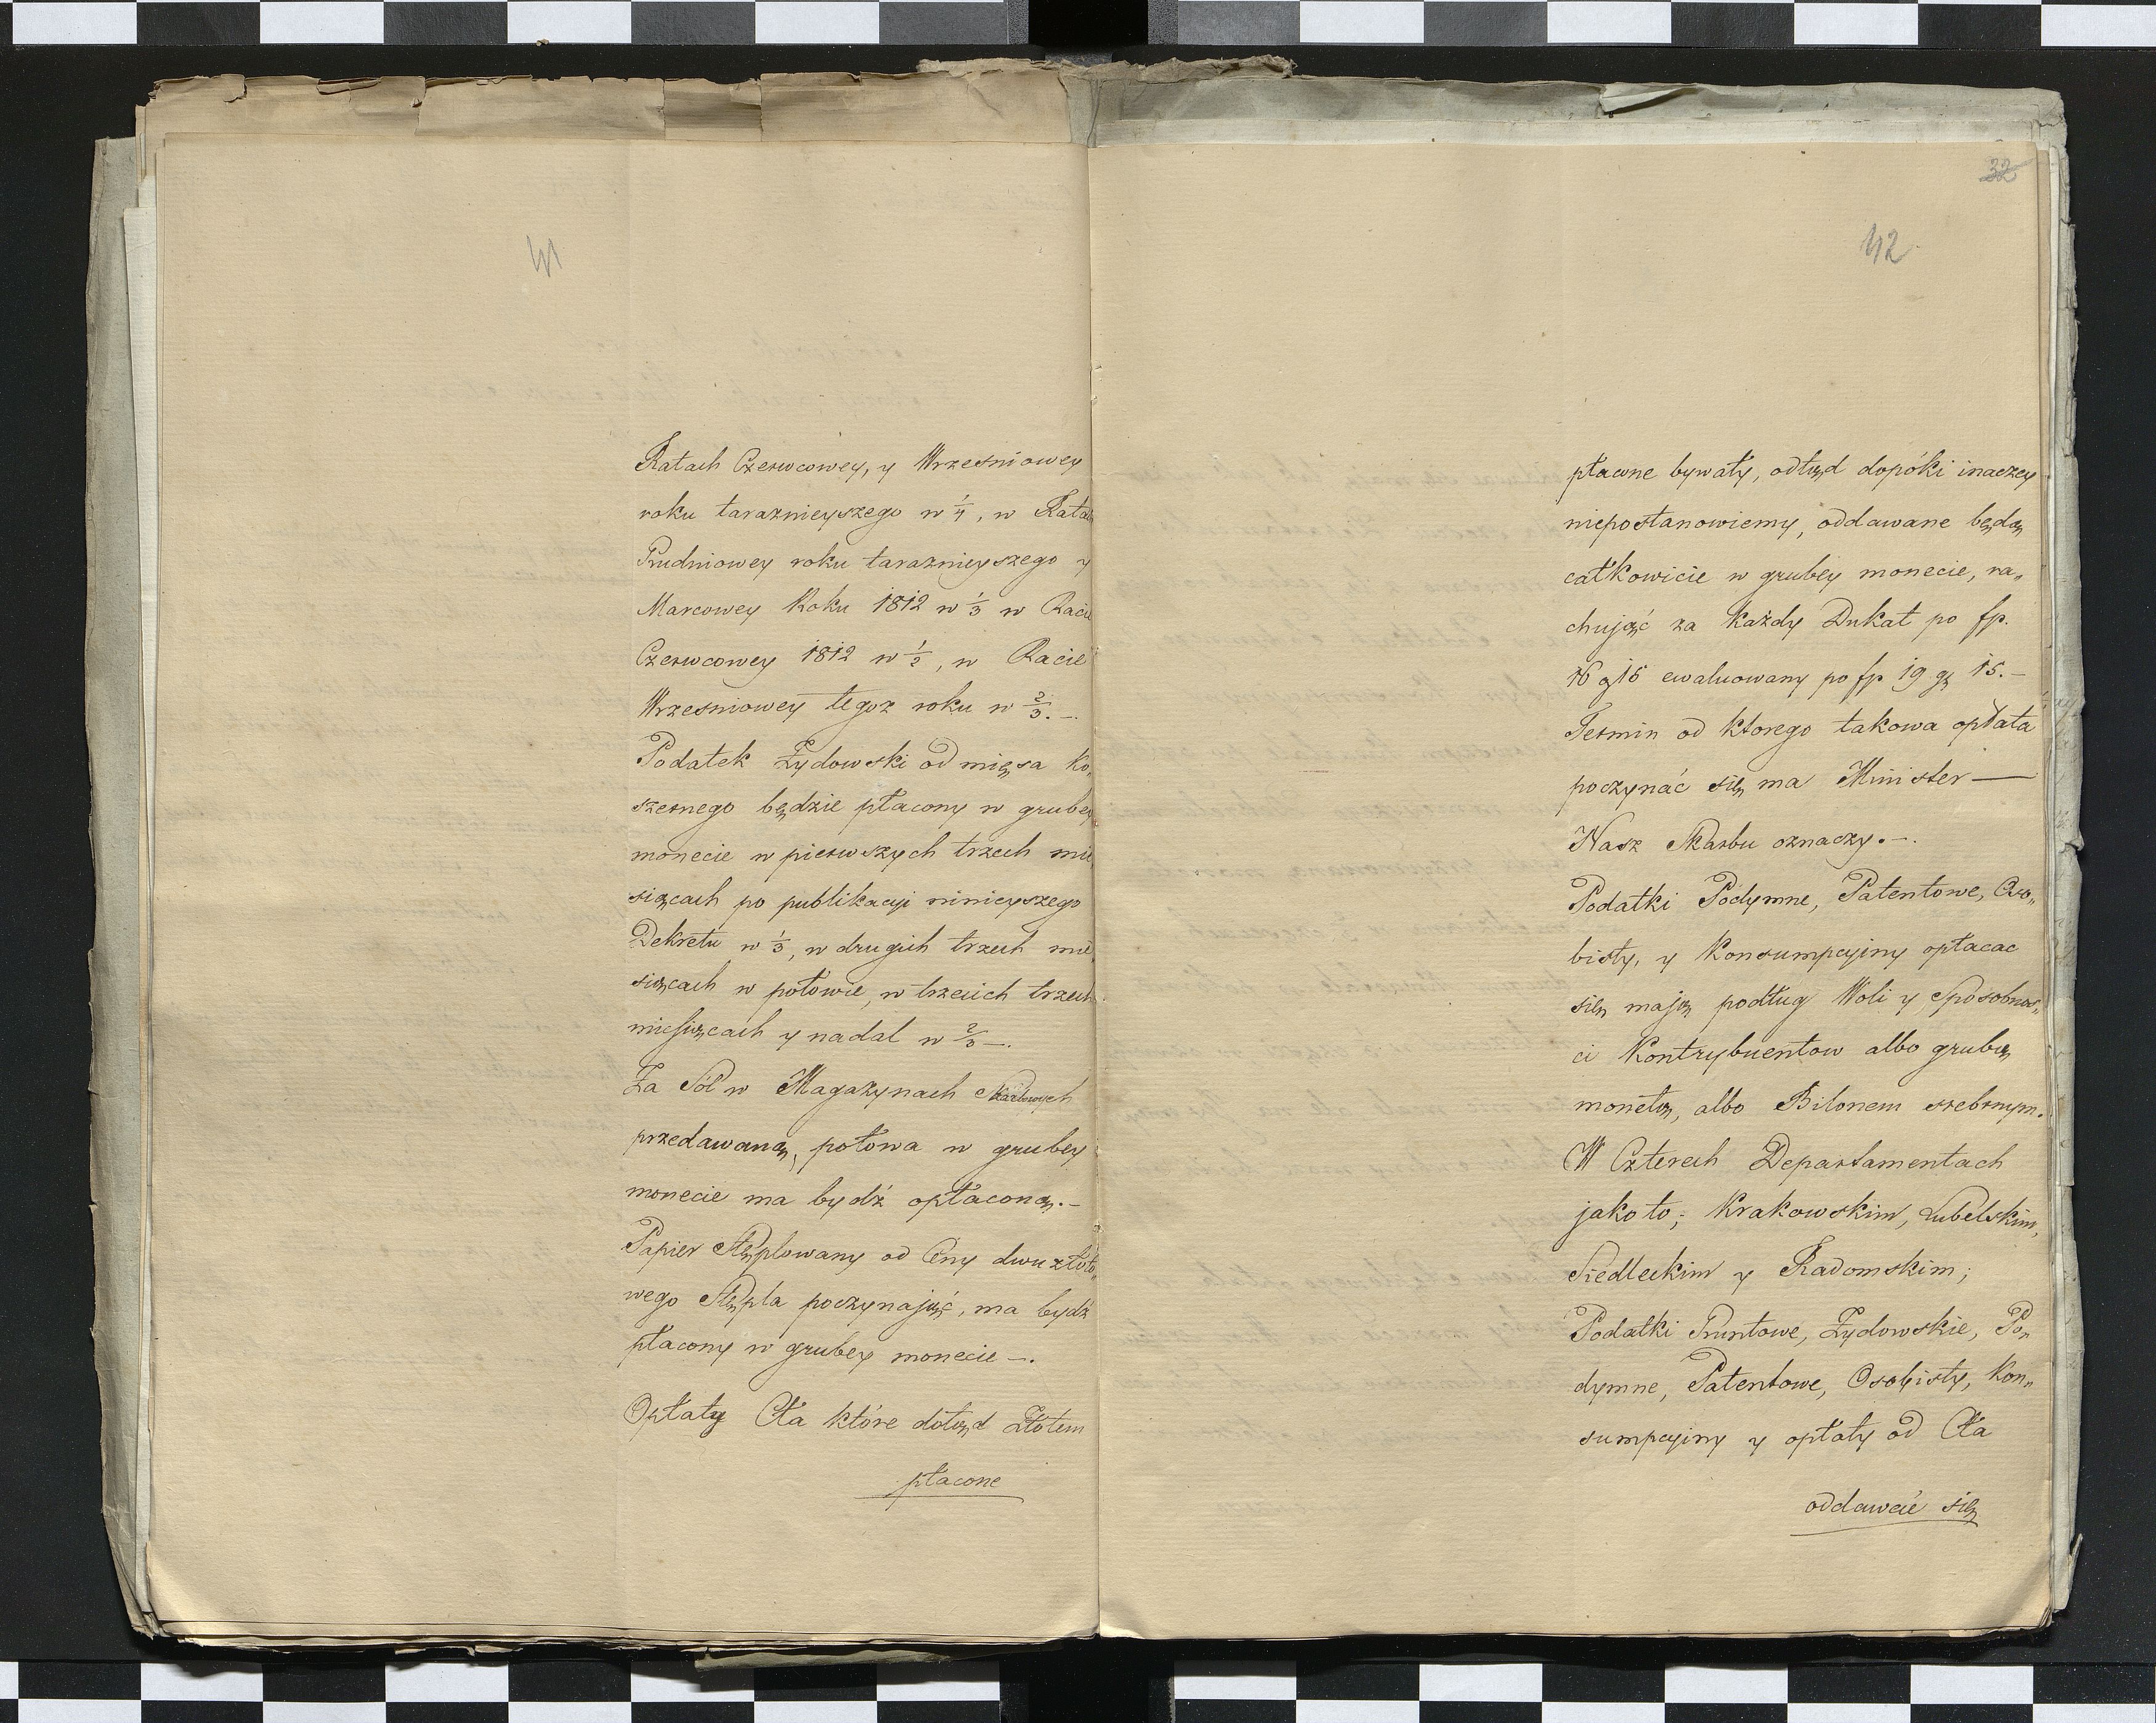 41
Ratach Czerwcowey, y Wrzesniowey
roku taraznieyszego w 1/4, w Ratach
Grudniowey roku taraznieyszego y
Marcowey Roku 1812 w 1/3 w Racie
Czerwcowey 1812 w 1/2, w Racie
Wrzesniowey tegoz roku w 2/3.-.
Podatek Zydowski od mięsa ko„
szernego będzie płacony w grubey
monecie w pierwszych trzech mie
siącach po publikacyi ninieyszego
Dekretu w 1/3, w drugich trzech mie„
siącach w połowie, w trzecich trzech
miesiącach y nadal w 2/3 -.
Za Sól w Magazynach Skarbowych
przedawaną, połowa w grubey
monecie ma bydź opłaconą.-
Papier Stęplowany od Ceny dwuzłoto„
wego Stępla poczynając, ma bydź
płacony w grubey monecie -.
Opłaty Cła które dotąd Złotem
płacone
32
42
płacone bywały, odtąd dopóki inaczey
niepostanowiemy, oddawane będą
całkowicie w grubey monecie, ra„
chując za każdy Dukat po fp.
16 g 16 ewaluowany po fp 19 gr 15.-
Termin od ktorego takowa opłata
poczynać się ma Minister —
Nasz Skarbu oznaczy.-.
Podatki Podymne, Patentowe, Oso„
bisty, y Konsumpcyiny opłacac
się mają podług Woli y Sposobnos„
ci Kontrybuentow albo grubą
monetą, albo Bilonem srebrnym.
W Czterech Departamentach
jako to; Krakowskim, Lubelskim,
Siedleckim y Radomskim;
Podatki Gruntowe, Zydowskie, Po„
dymne, Patentowe, Osobisty, Kon„
sumpcyiny y opłaty od Cła
oddawcie się